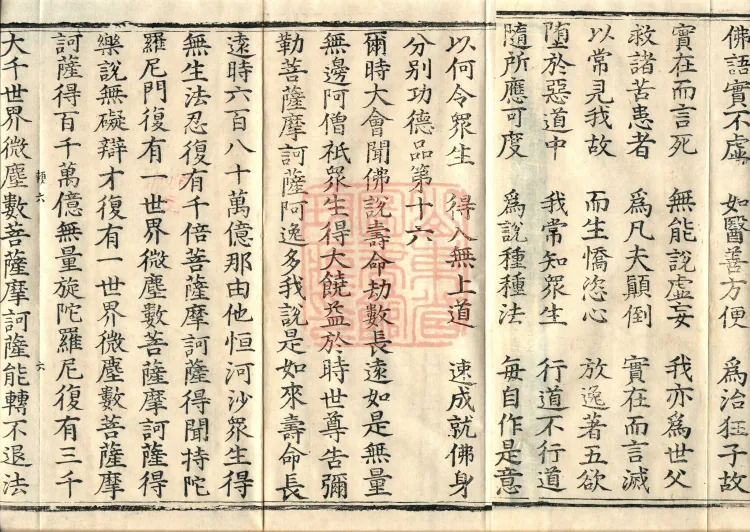 佛語實不虛 如醫善方便 爲治狂子故
實在而言死 無能說虛妄 我亦爲世父
救諸苦患者 爲凡夫顚倒 實在而言滅
以常見我故 而生憍恣心 放逸著五欲
堕於惡道中 我常知衆生 行道不行道
隨所應可度 爲說種種法 每自作是意
以何令衆生 得入無上道 速成就佛身
分別功德品第十六
爾時大會聞佛說壽命劫數長遠如是無量
無邊阿僧祇衆生得大饒益於時世尊告彌
勒菩薩摩訶薩阿逸多我說是如來壽命長
遠時六百八十萬億那由他恒河沙衆生得
無生法忍復有千倍菩薩摩訶薩得聞持陀
羅尼門復有一世界微塵數菩薩摩訶薩得
樂說無礙辯才復有一世界微塵數菩薩摩
訶薩得百千萬億無量旋陀羅尼復有三千
六 六
大千世界微塵數菩薩摩訶薩能轉不退法